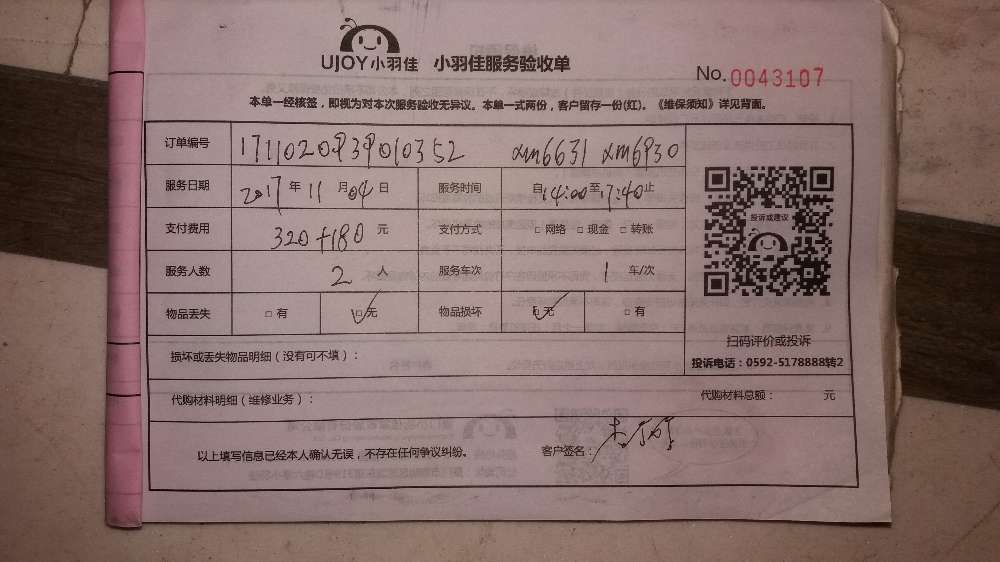 UJOY小羽佳 小羽佳服务验收单
No.0043107
本单一经核签，即视为对本次服务验收无异议。本单一式两份，客户留存一份(红)。《维保须知》详见背面。
订单编号 1711020939010352 xm6631 xm6930
服务日期 2017年11月04日 服务时间 自14:00至17:40止
投诉或建议
支付费用 320+180元 支付方式 □网络 □现金 □转账
服务人数 2人 服务车次 1车/次
物品丢失 □有 ☑无 物品损坏 ☑无 □有
扫码评价或投诉
损坏或丢失物品明细（没有可不填）： 投诉电话：0592-5178888转2
代购材料明细（维修业务）： 代购材料总额： 元
以上填写信息已经本人确认无误，不存在任何争议纠纷。 客户签名：